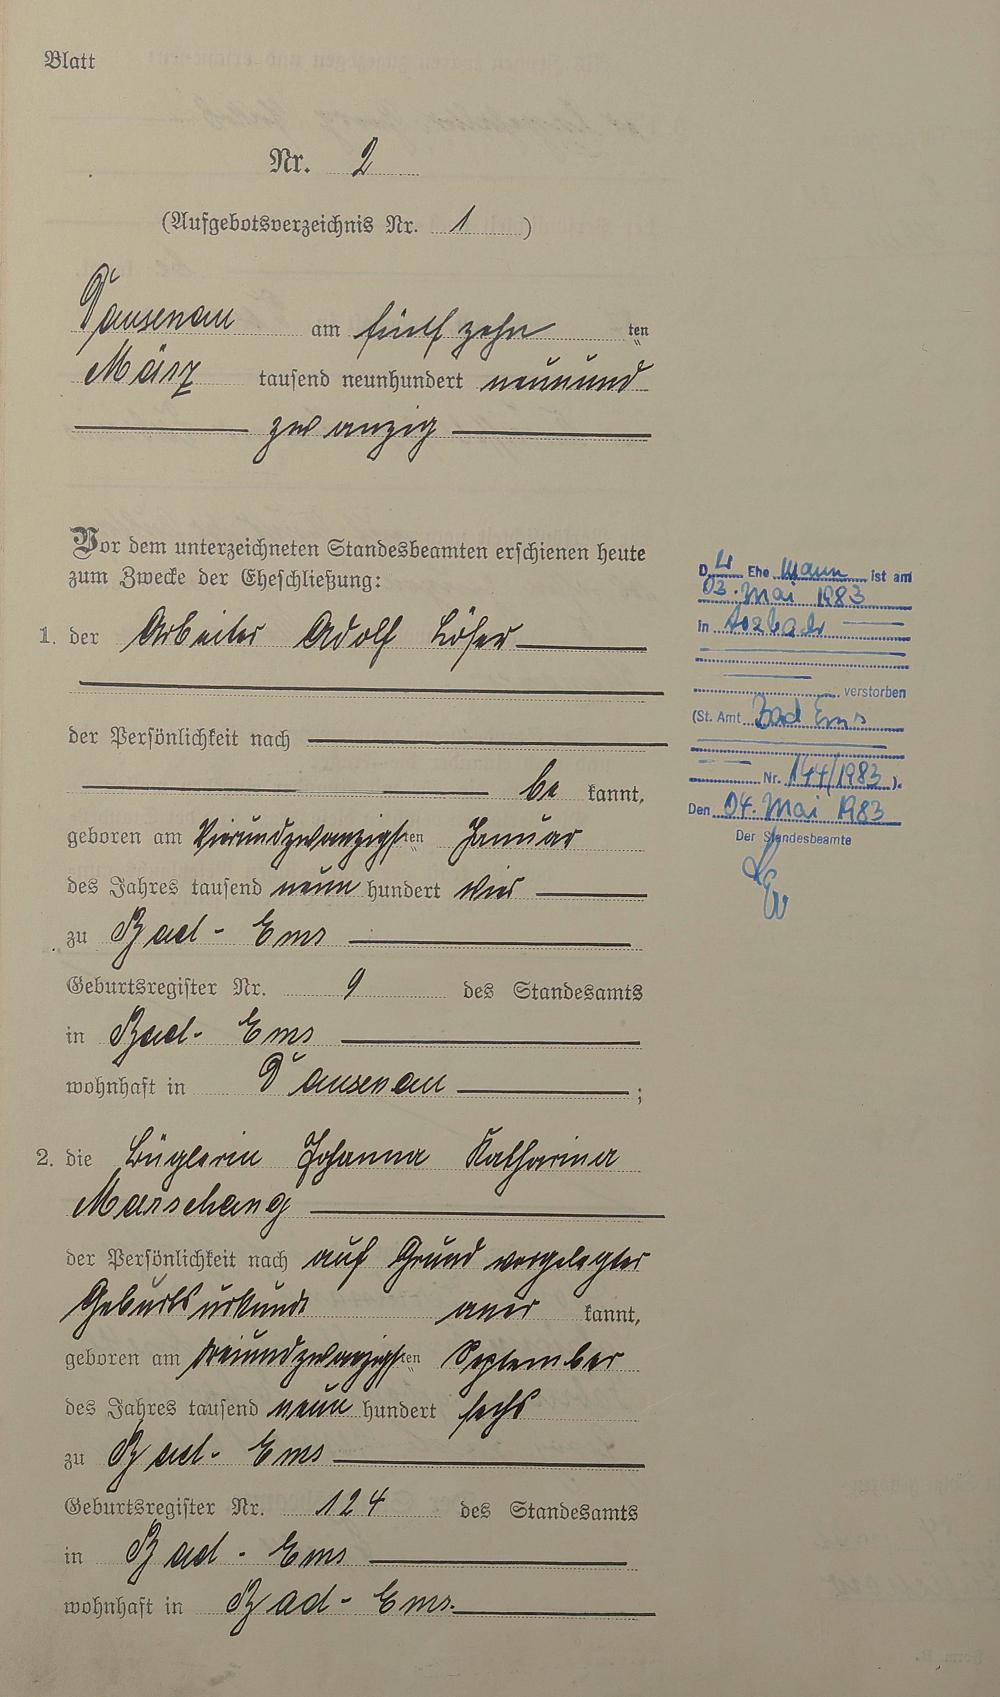 Blatt
Nr. 2
(Aufgebotsverzeichnis Nr. 1 )
Dausenau am fünfzehn ten
März tausend neunhundert neunund
zwanzig
Vor dem unterzeichneten Standesbeamten erschienen heute
zum Zwecke der Eheschließung:
1. der Arbeiter Adolf Löser
der Persönlichkeit nach
be kannt,
geboren am vierundzwanzigsten Januar
des Jahres tausend neun hundert vier
zu Bad-Ems
Geburtsregister Nr. 9 des Standesamts
in Bad-Ems
wohnhaft in Dausenau ;
2. die Büglerin Johanna Katharina
Marschang
der Persönlichkeit nach auf Grund vorgelegter
Geburtsurkunde aner kannt,
geboren am dreiundzwanzigsten September
des Jahres tausend neun hundert sechs
zu Bad-Ems
Geburtsregister Nr. 124 des Standesamts
in Bad-Ems
wohnhaft in Bad-Ems.
Der Ehemann ist am
03. Mai 1983
in
verstorben
(St. Amt Bad Ems
Nr. 144/1983 ).
Den 04. Mai 1983
Der Standesbeamte